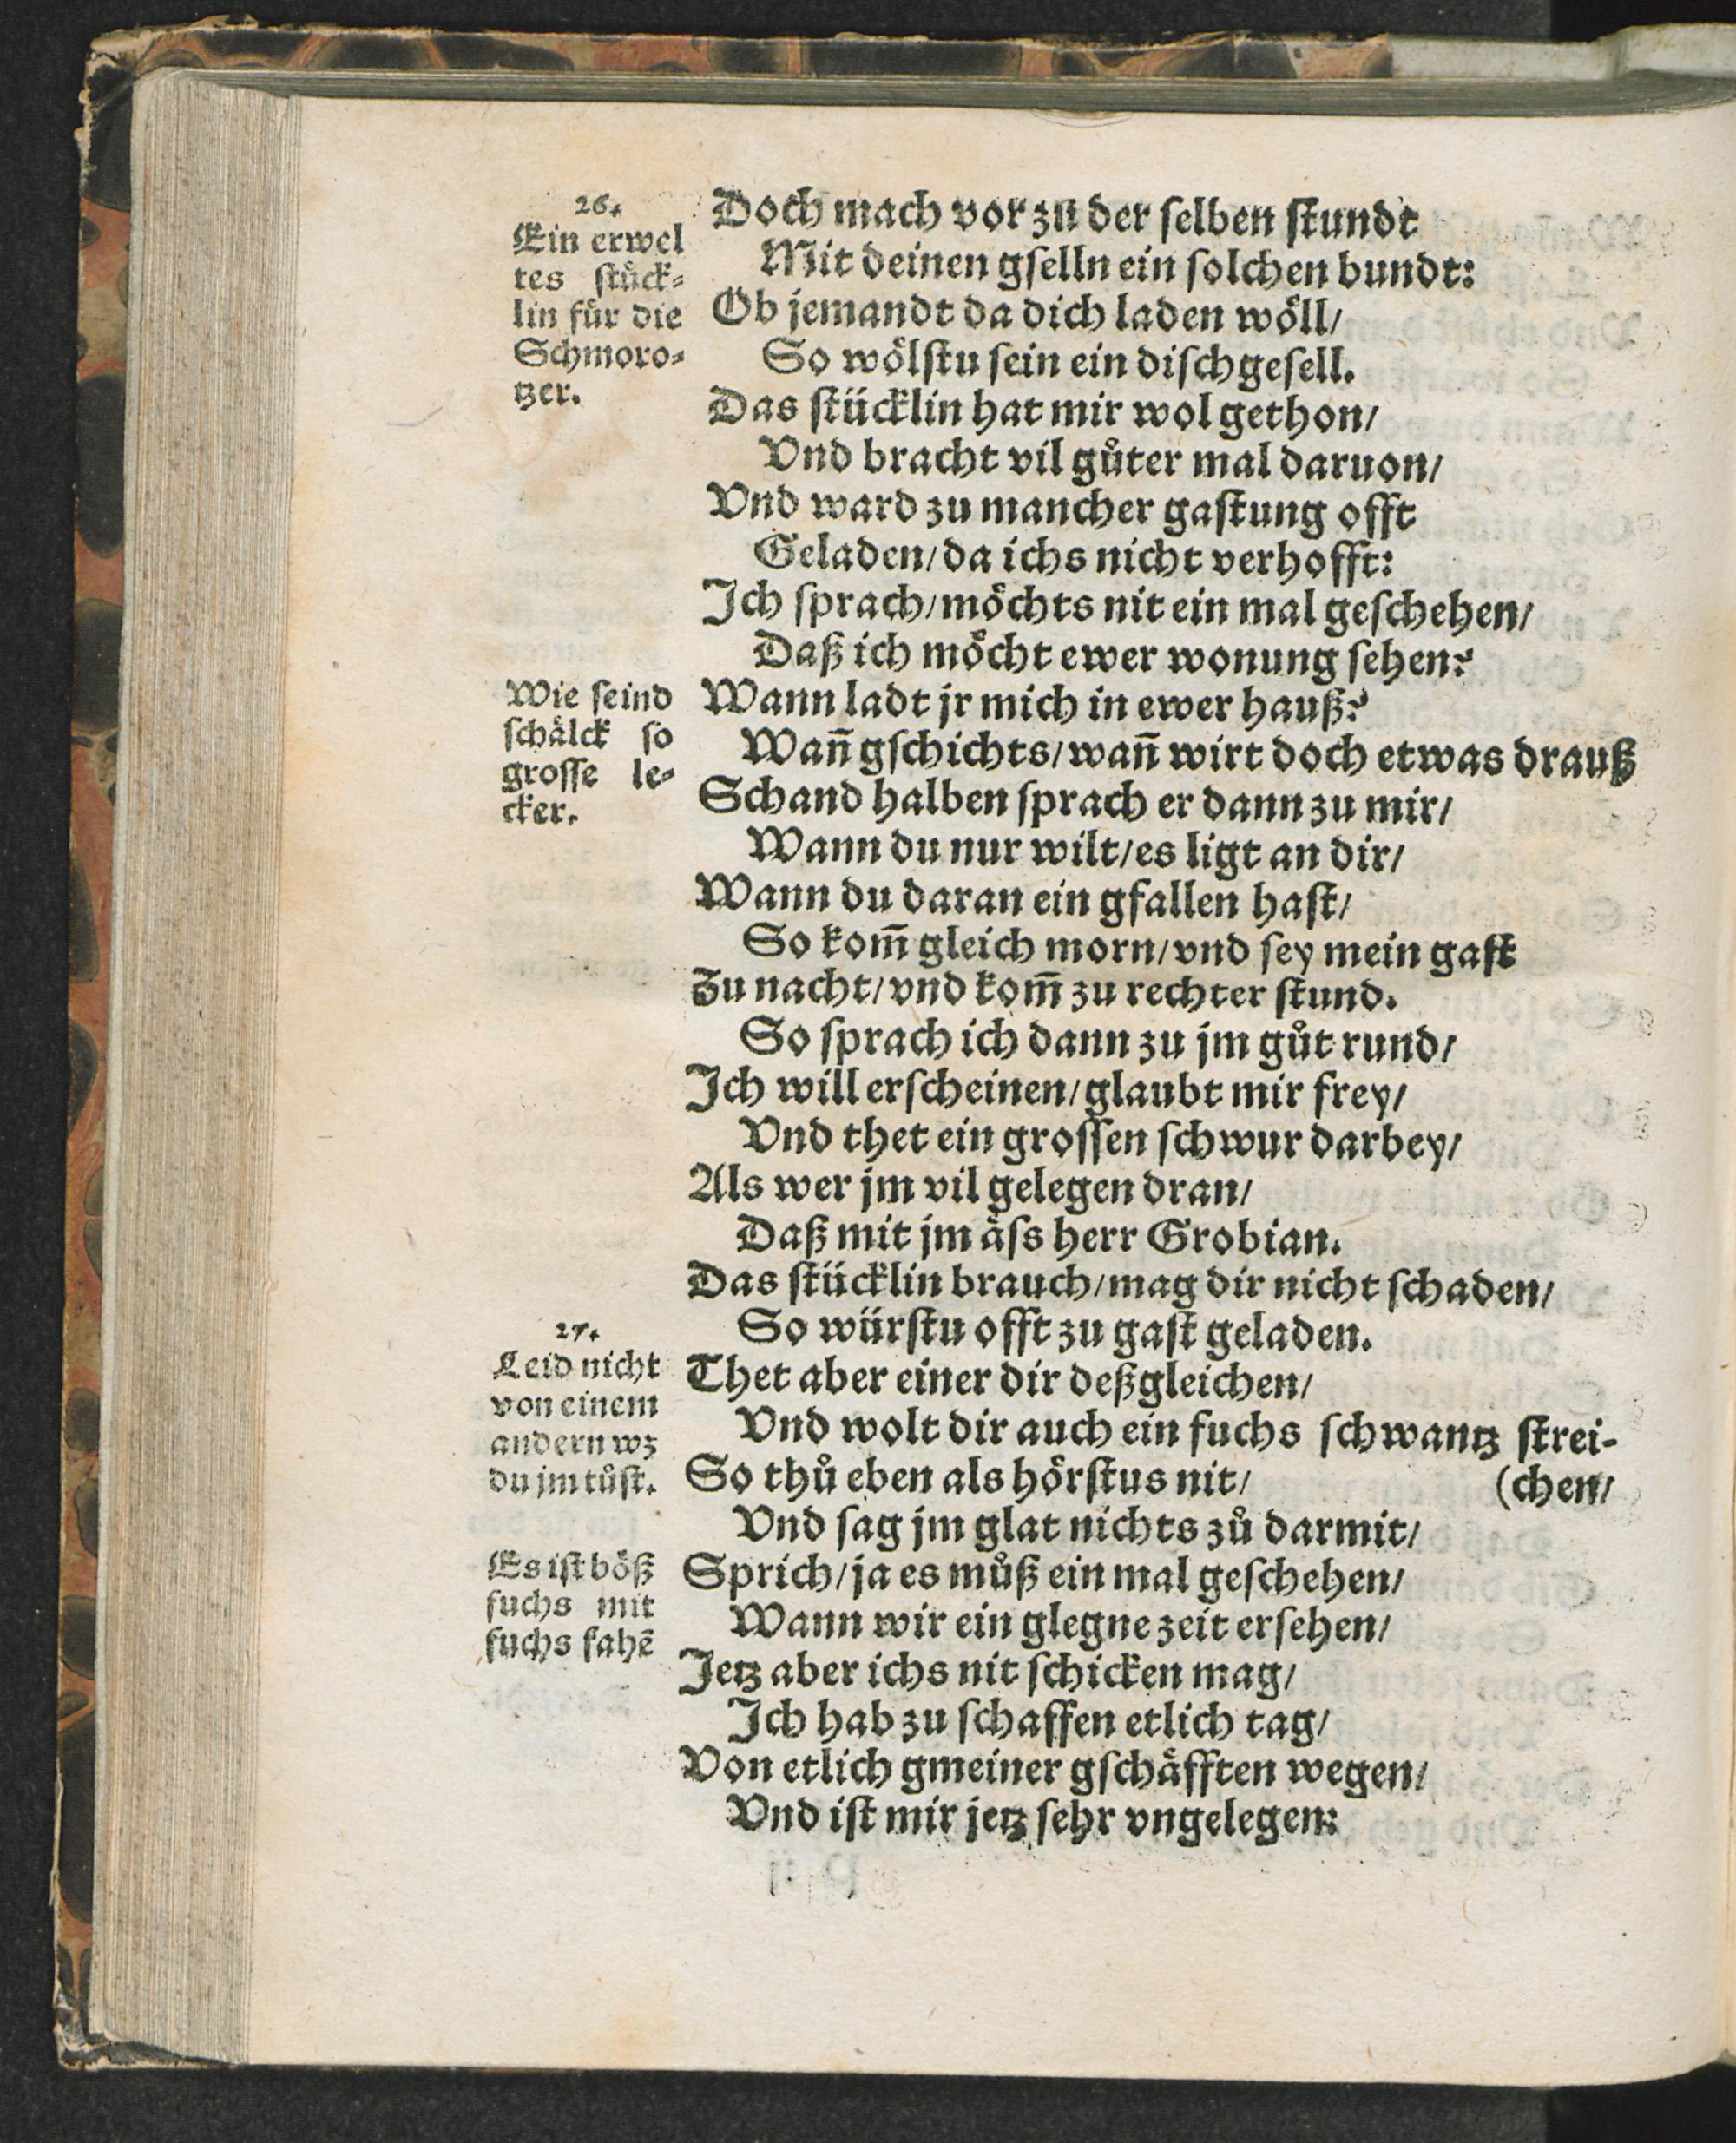 26.
Ein erwel
tes stuͤck-
lin fuͤr die
Schmoro-
tzer.
Doch mach vor zu der selben stundt
Mit deinen gselln ein solchen bundt:
Ob jemandt da dich laden woͤll/
So woͤlstu sein ein dischgesell.
Das stücklin hat mir wol gethon/
Vnd bracht vil guͦter mal daruon/
Vnd ward zu mancher gastung offt
Geladen/da ichs nicht verhofft:
Ich sprach/moͤchts nit ein mal geschehen/
Daß ich moͤcht ewer wonung sehen?
Wie seind
schaͤlck so
grosse le-
cker.
Wann ladt jr mich in ewer hauß?
Wañ gschichts/wañ wirt doch etwas drauß
Schand halben sprach er dann zu mir/
Wann du nur wilt/es ligt an dir/
Wann du daran ein gfallen hast/
So kom̃ gleich morn/vnd sey mein gast
Zu nacht/vnd kom̃ zu rechter stund.
So sprach ich dann zu jm guͦt rund/
Ich will erscheinen/glaubt mir frey/
Vnd thet ein grossen schwur darbey/
Als wer jm vil gelegen dran/
Daß mit jm aͤss herr Grobian.
Das stücklin brauch/mag dir nicht schaden/
So würstu offt zu gast geladen.
27.
Leid nicht
von einem
andern wz
du jm tuͦst.
Thet aber einer dir deßgleichen/
Vnd wolt dir auch ein fuchs schwantz strei-
So thuͦ eben als hoͤrstus nit/ (chen/
Vnd sag jm glat nichts zuͦ darmit/
Es ist boͤß
fuchs mit
fuchs fahẽ
Sprich/ja es muͦß ein mal geschehen/
Wann wir ein glegne zeit ersehen/
Jetz aber ichs nit schicken mag/
Ich hab zu schaffen etlich tag/
Von etlich gmeiner gschaͤfften wegen/
Vnd ist mir jetz sehr vngelegen: